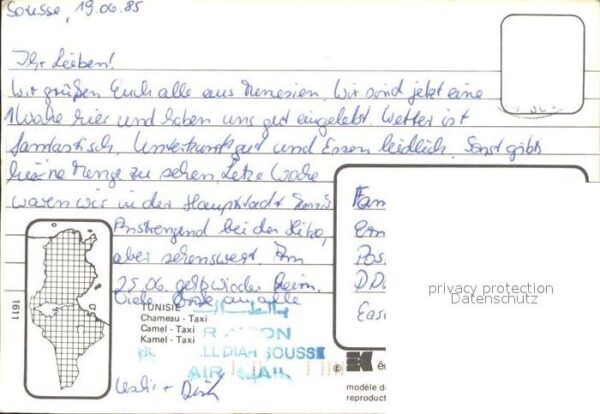 Sousse, 19.06.85
Ihr Lieben!
Wir grüßen Euch alle aus Tunesien. Wir sind jetzt eine
Woche hier und haben uns gut eingelebt. Wetter ist
fantastisch. Unterkunft gut und Essen leidlich. Sonst gibts
eine Menge zu sehen. Letzte Woche
waren wir in der Hauptstadt Tunis
Anstrengend bei der Hitze,
aber sehenswert. Am
25.06. gehts wieder heim.
Viele Grüße an alle
+ Dirk
1611
TUNISIE
Chameau - Taxi
Camel - Taxi
Kamel - Taxi
SOUSSE
AIR MAIL
Fam
Pos
DD
Eas
privacy protection
Datenschutz
©
modèle d
reproduct